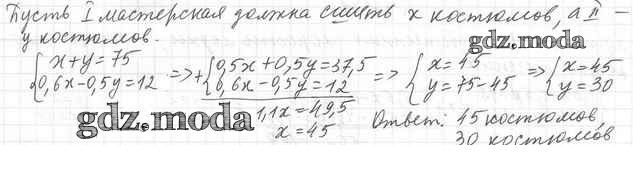 Пусть I мастерская должна сшить x костюмов, а II –
y костюмов.
gdz.moda
{x+y=75
0,6x-0,5y=12 => +{0,5x+0,5y=37,5
0,6x-0,5y=12 => {x=45
y=75-45 => {x=45
y=30
1,1x=49,5
x=45
gdz.moda
Ответ: 45 костюмов,
30 костюмов